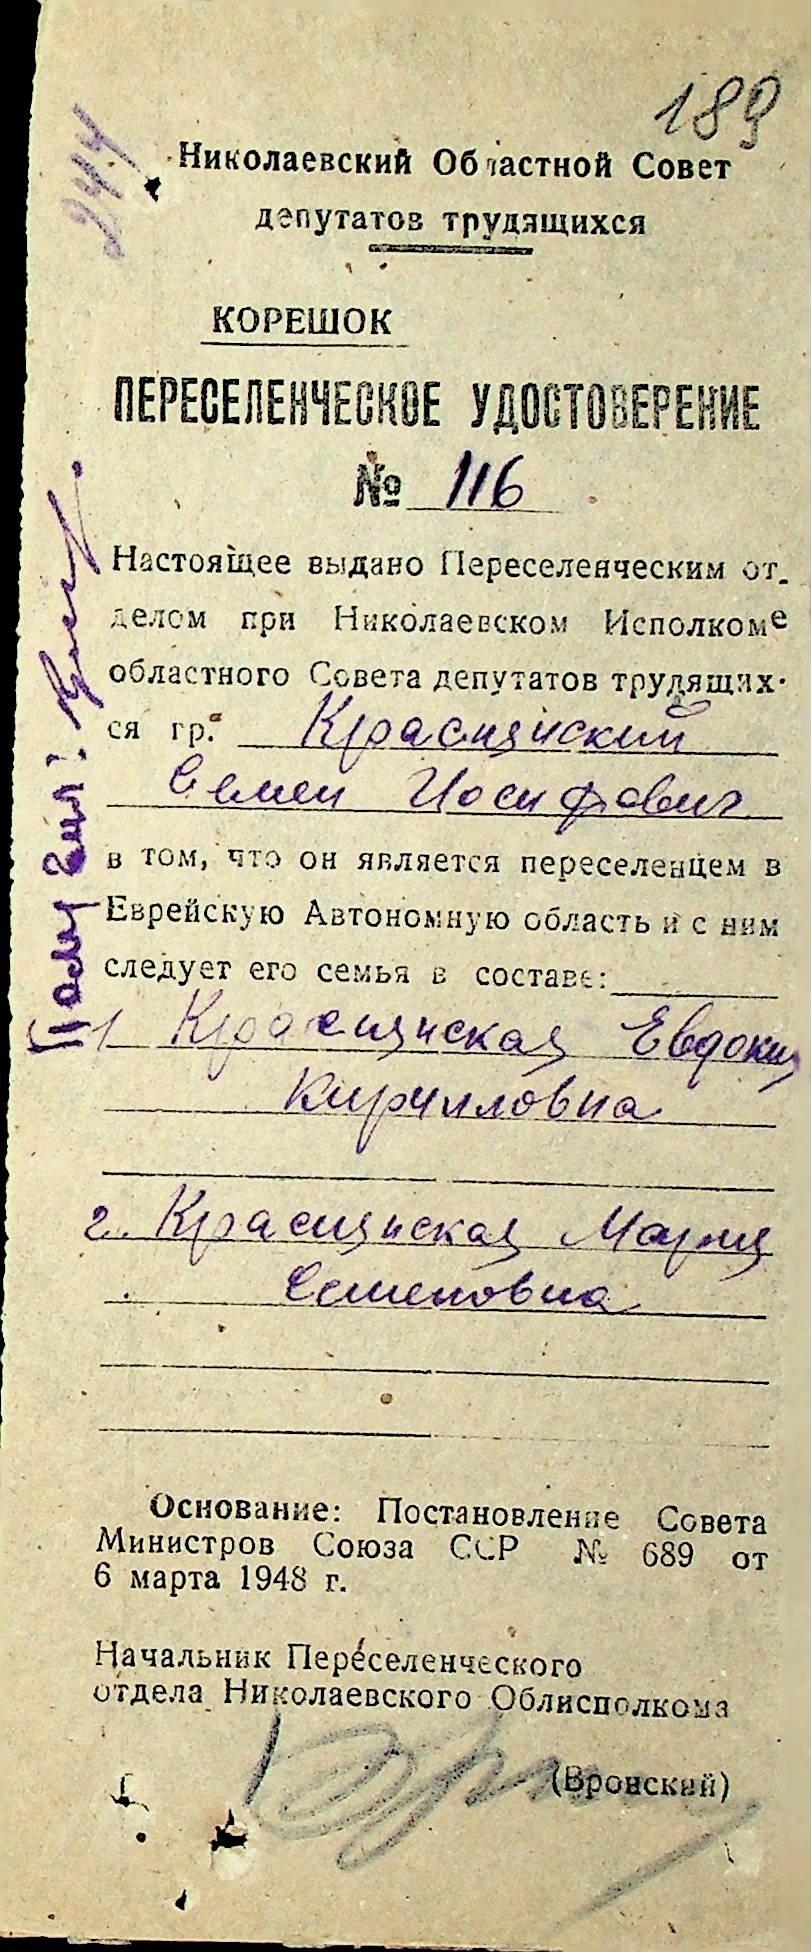 189
244
Николаевский Областной Совет
депутатов трудящихся
КОРЕШОК
ПЕРЕСЕЛЕНЧЕСКОЕ УДОСТОВЕРЕНИЕ
№ 116
Настоящее выдано Переселенческим от-
делом при Николаевском Исполкоме
областного Совета депутатов трудящих-
ся гр. Красицкий
Семен Иосифович
в том, что он является переселенцем в
Еврейскую Автономную область и с ним
следует его семья в составе:
1 Красицкая Евдокия
Кирилловна
2. Красицкая Мария
Семеновна
Основание: Постановление Совета
Министров Союза ССР № 689 от
6 марта 1948 г.
Начальник Переселенческого
отдела Николаевского Облисполкома
(Вронский)